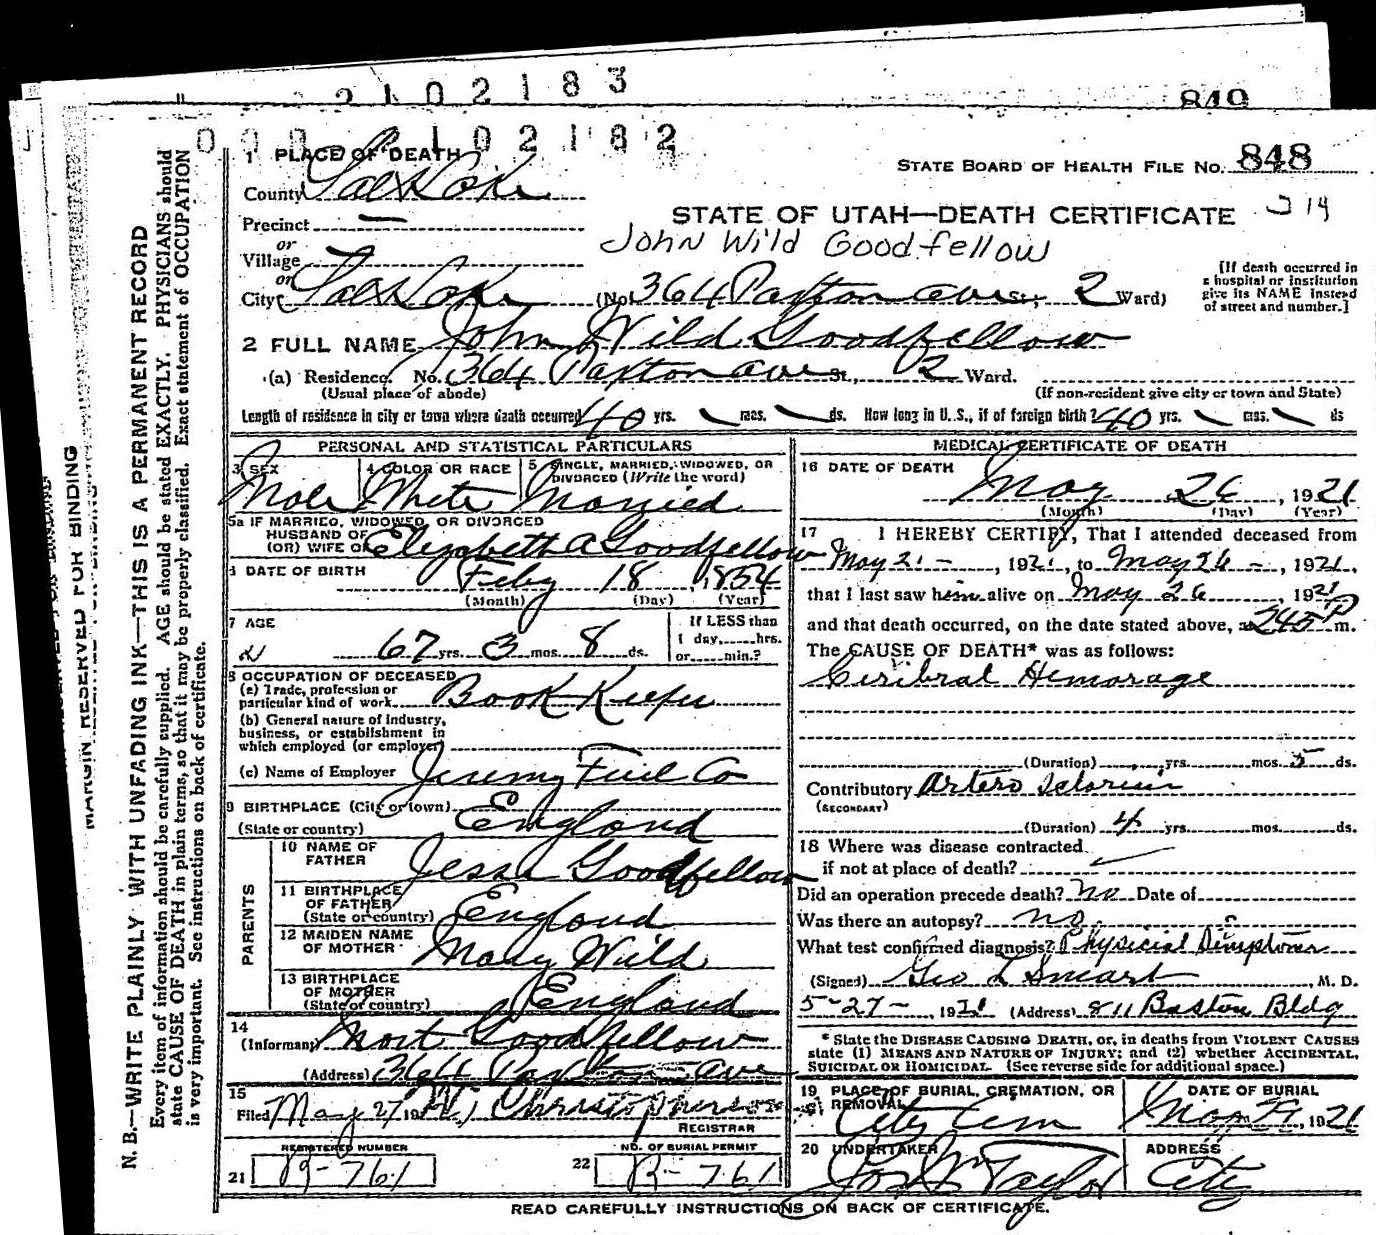 2102183
849
102182
1 PLACE OF DEATH
STATE BOARD OF HEALTH FILE NO. 848
County Salt Lake
STATE OF UTAH—DEATH CERTIFICATE
Precinct —
John Wild Goodfellow
or
Village
or
City Salt Lake (No. 364 Paxton ave St.; 2 Ward)
[If death occurred in
a hospital or institution
give its NAME instead
of street and number.]
2 FULL NAME John Wild Goodfellow
(a) Residence. No. 364 Paxton ave St., 2 Ward.
(Usual place of abode) (If non-resident give city or town and State)
Length of residence in city or town where death occurred 40 yrs. \ mos. \ ds. How long in U. S., if of foreign birth? 40 yrs. \ mos. \ ds
PERSONAL AND STATISTICAL PARTICULARS
3 SEX Male
4 COLOR OR RACE White
5 SINGLE, MARRIED, WIDOWED, OR
DIVORCED (Write the word)
Married
5a IF MARRIED, WIDOWED, OR DIVORCED
HUSBAND OF
(OR) WIFE OF Elizabeth A Goodfellow
6 DATE OF BIRTH Feby 18, 1854
(Month) (Day) (Year)
7 AGE
67 yrs. 3 mos. 8 ds.
If LESS than
1 day,.....hrs.
or.....min.?
8 OCCUPATION OF DECEASED
(a) Trade, profession or
particular kind of work Book Keeper
(b) General nature of industry,
business, or establishment in
which employed (or employer)
(c) Name of Employer Jeremy Fuel Co
9 BIRTHPLACE (City or town)
(State or country) England
PARENTS
10 NAME OF
FATHER Jesse Goodfellow
11 BIRTHPLACE
OF FATHER
(State or country) England
12 MAIDEN NAME
OF MOTHER Mary Wild
13 BIRTHPLACE
OF MOTHER
(State or country) England
14
(Informant) Mort Goodfellow
(Address) 364 Paxton ave
15
Filed May 27 19 Christopherson
REGISTRAR
REGISTERED NUMBER
21 B-761
NO. OF BURIAL PERMIT
22 B-761
MEDICAL CERTIFICATE OF DEATH
16 DATE OF DEATH
May 26, 1921
(Month) (Day) (Year)
17 I HEREBY CERTIFY, That I attended deceased from
May 21 -, 1921, to May 26 -, 1921,
that I last saw him alive on May 26, 1921
and that death occurred, on the date stated above, at 245 P m.
The CAUSE OF DEATH* was as follows:
Ceribral Hemorage
(Duration) yrs. mos. 5 ds.
Contributory Artero Sclorisis
(SECONDARY)
(Duration) 4 yrs. mos. ds.
18 Where was disease contracted
if not at place of death?
Did an operation precede death? no Date of
Was there an autopsy? no
What test confirmed diagnosis? Physicial Simptoms
(Signed) Geo L Smart, M. D.
5-27-, 1921 (Address) 811 Boston Bldg
* State the DISEASE CAUSING DEATH, or, in deaths from VIOLENT CAUSES
state (1) MEANS AND NATURE OF INJURY; and (2) whether ACCIDENTAL,
SUICIDAL OR HOMICIDAL. (See reverse side for additional space.)
19 PLACE OF BURIAL, CREMATION, OR
REMOVAL
City Cem
DATE OF BURIAL
May 29, 1921
20 UNDERTAKER
Jos Wm Taylor
ADDRESS
City
READ CAREFULLY INSTRUCTIONS ON BACK OF CERTIFICATE.
MARGIN RESERVED FOR BINDING
N. B.—WRITE PLAINLY WITH UNFADING INK—THIS IS A PERMANENT RECORD
Every item of information should be carefully supplied. AGE should be stated EXACTLY. PHYSICIANS should
state CAUSE OF DEATH in plain terms, so that it may be properly classified. Exact statement of OCCUPATION
is very important. See instructions on back of certificate.